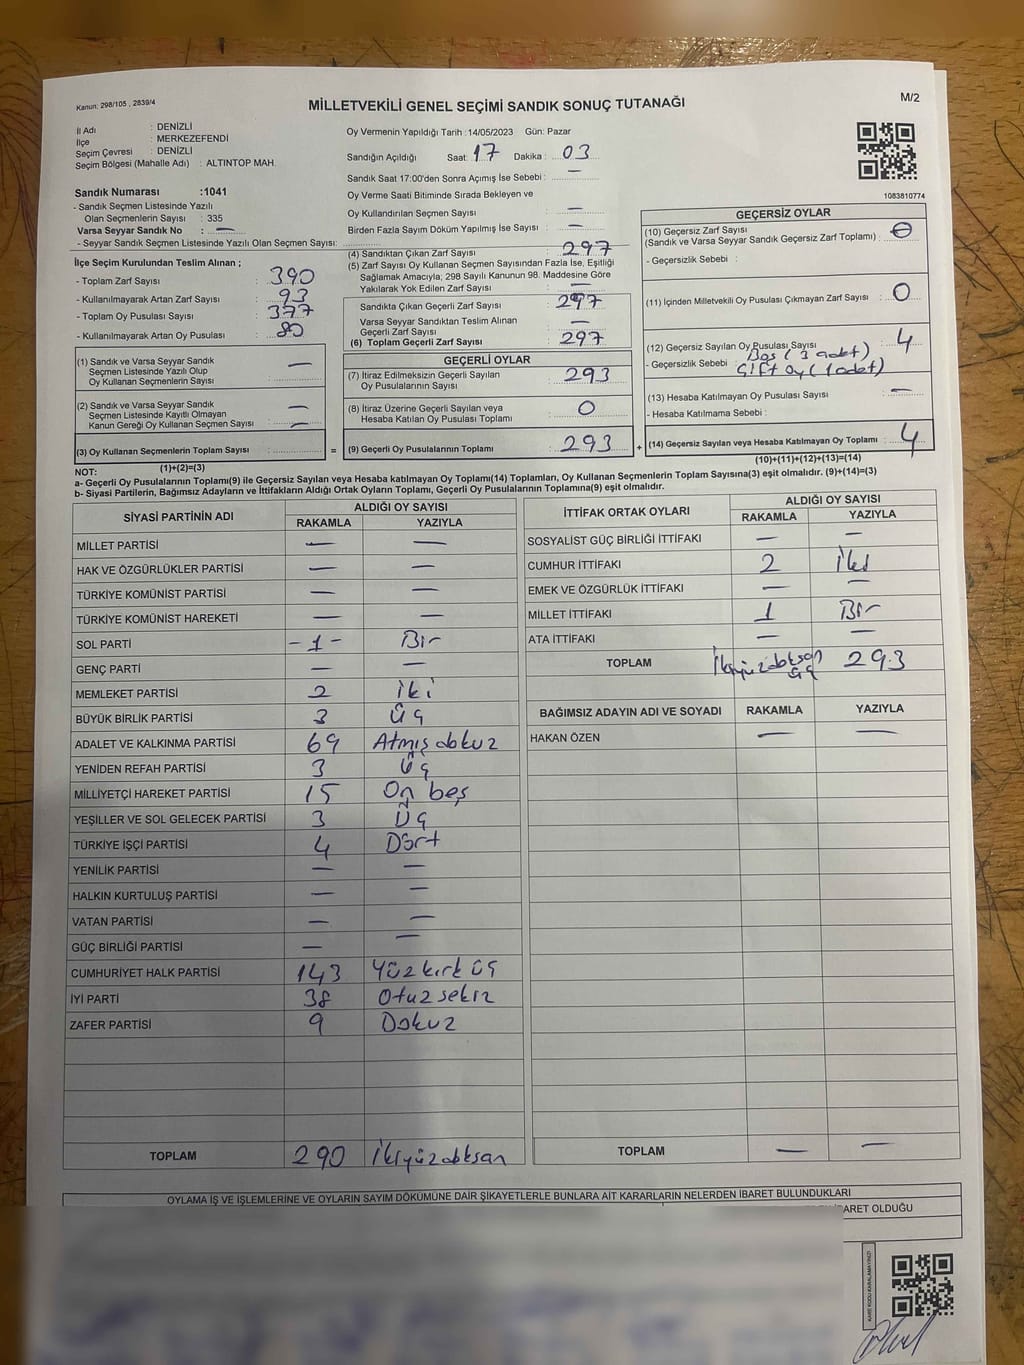 Kanun: 298/105 , 2839/4
MİLLETVEKİLİ GENEL SEÇİMİ SANDIK SONUÇ TUTANAĞI
M/2
İl Adı : DENİZLİ
İlçe : MERKEZEFENDİ
Seçim Çevresi : DENİZLİ
Seçim Bölgesi (Mahalle Adı) : ALTINTOP MAH.
Sandık Numarası :1041
- Sandık Seçmen Listesinde Yazılı
Olan Seçmenlerin Sayısı : 335
Varsa Seyyar Sandık No : —
- Seyyar Sandık Seçmen Listesinde Yazılı Olan Seçmen Sayısı:
İlçe Seçim Kurulundan Teslim Alınan ;
- Toplam Zarf Sayısı : 390
- Kullanılmayarak Artan Zarf Sayısı : 93
- Toplam Oy Pusulası Sayısı : 377
- Kullanılmayarak Artan Oy Pusulası : 80
(1) Sandık ve Varsa Seyyar Sandık
Seçmen Listesinde Yazılı Olup
Oy Kullanan Seçmenlerin Sayısı : —
(2) Sandık ve Varsa Seyyar Sandık
Seçmen Listesinde Kayıtlı Olmayan
Kanun Gereği Oy Kullanan Seçmen Sayısı : —
(3) Oy Kullanan Seçmenlerin Toplam Sayısı : =
(1)+(2)=(3)
Oy Vermenin Yapıldığı Tarih :14/05/2023 Gün: Pazar
Sandığın Açıldığı Saat: 17 Dakika : 03
Sandık Saat 17:00'den Sonra Açımış İse Sebebi : —
Oy Verme Saati Bitiminde Sırada Bekleyen ve
Oy Kullandırılan Seçmen Sayısı : —
Birden Fazla Sayım Döküm Yapılmış İse Sayısı : —
(4) Sandıktan Çıkan Zarf Sayısı : 297
(5) Zarf Sayısı Oy Kullanan Seçmen Sayısından Fazla İse, Eşitliği
Sağlamak Amacıyla; 298 Sayılı Kanunun 98. Maddesine Göre
Yakılarak Yok Edilen Zarf Sayısı : —
Sandıkta Çıkan Geçerli Zarf Sayısı : 297
Varsa Seyyar Sandıktan Teslim Alınan
Geçerli Zarf Sayısı : —
(6) Toplam Geçerli Zarf Sayısı : 297
GEÇERLİ OYLAR
(7) İtiraz Edilmeksizin Geçerli Sayılan
Oy Pusulalarının Sayısı : 293
(8) İtiraz Üzerine Geçerli Sayılan veya
Hesaba Katılan Oy Pusulası Toplamı : 0
(9) Geçerli Oy Pusulalarının Toplamı : 293 +
1083810774
GEÇERSİZ OYLAR
(10) Geçersiz Zarf Sayısı
(Sandık ve Varsa Seyyar Sandık Geçersiz Zarf Toplamı) : 0
- Geçersizlik Sebebi :
(11) İçinden Milletvekili Oy Pusulası Çıkmayan Zarf Sayısı : 0
(12) Geçersiz Sayılan Oy Pusulası Sayısı : 4
- Geçersizlik Sebebi : Boş (3 adet)
Çift oy (1 adet)
(13) Hesaba Katılmayan Oy Pusulası Sayısı : —
- Hesaba Katılmama Sebebi :
(14) Geçersiz Sayılan veya Hesaba Katılmayan Oy Toplamı : 4
(10)+(11)+(12)+(13)=(14)
NOT:
a- Geçerli Oy Pusulalarının Toplamı(9) ile Geçersiz Sayılan veya Hesaba Katılmayan Oy Toplamı(14) Toplamları, Oy Kullanan Seçmenlerin Toplam Sayısına(3) eşit olmalıdır. (9)+(14)=(3)
b- Siyasi Partilerin, Bağımsız Adayların ve İttifakların Aldığı Ortak Oyların Toplamı, Geçerli Oy Pusulalarının Toplamına(9) eşit olmalıdır.
SİYASİ PARTİNİN ADI ALDIĞI OY SAYISI
RAKAMLA YAZIYLA
MİLLET PARTİSİ — —
HAK VE ÖZGÜRLÜKLER PARTİSİ — —
TÜRKİYE KOMÜNİST PARTİSİ — —
TÜRKİYE KOMÜNİST HAREKETİ — —
SOL PARTİ -1- Bir
GENÇ PARTİ — —
MEMLEKET PARTİSİ 2 iki
BÜYÜK BİRLİK PARTİSİ 3 üç
ADALET VE KALKINMA PARTİSİ 69 Atmış dokuz
YENİDEN REFAH PARTİSİ 3 üç
MİLLİYETÇİ HAREKET PARTİSİ 15 On beş
YEŞİLLER VE SOL GELECEK PARTİSİ 3 Üç
TÜRKİYE İŞÇİ PARTİSİ 4 Dört
YENİLİK PARTİSİ — —
HALKIN KURTULUŞ PARTİSİ — —
VATAN PARTİSİ — —
GÜÇ BİRLİĞİ PARTİSİ — —
CUMHURİYET HALK PARTİSİ 143 Yüz kırk üç
İYİ PARTİ 38 Otuz sekiz
ZAFER PARTİSİ 9 Dokuz
TOPLAM 290 İkiyüzdoksan
İTTİFAK ORTAK OYLARI ALDIĞI OY SAYISI
RAKAMLA YAZIYLA
SOSYALİST GÜÇ BİRLİĞİ İTTİFAKI — —
CUMHUR İTTİFAKI 2 İki
EMEK VE ÖZGÜRLÜK İTTİFAKI — —
MİLLET İTTİFAKI 1 Bir
ATA İTTİFAKI — —
TOPLAM İkiyüzdoksan üç 293
BAĞIMSIZ ADAYIN ADI VE SOYADI RAKAMLA YAZIYLA
HAKAN ÖZEN — —
TOPLAM — —
OYLAMA İŞ VE İŞLEMLERİNE VE OYLARIN SAYIM DÖKÜMÜNE DAİR ŞİKAYETLERLE BUNLARA AİT KARARLARIN NELERDEN İBARET BULUNDUKLARI
İBARET OLDUĞU